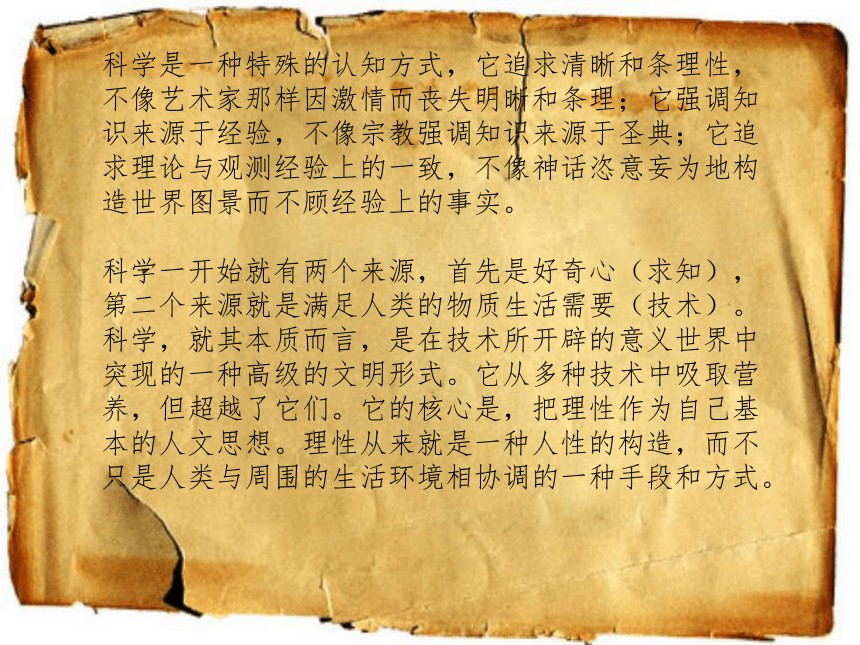 科学是一种特殊的认知方式，它追求清晰和条理性，
不像艺术家那样因激情而丧失明晰和条理；它强调知
识来源于经验，不像宗教强调知识来源于圣典；它追
求理论与观测经验上的一致，不像神话恣意妄为地构
造世界图景而不顾经验上的事实。
科学一开始就有两个来源，首先是好奇心（求知），
第二个来源就是满足人类的物质生活需要（技术）。
科学，就其本质而言，是在技术所开辟的意义世界中
突现的一种高级的文明形式。它从多种技术中吸取营
养，但超越了它们。它的核心是，把理性作为自己基
本的人文思想。理性从来就是一种人性的构造，而不
只是人类与周围的生活环境相协调的一种手段和方式。